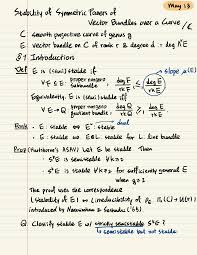 May 13
Stability of Symmetric Powers of
Vector Bundles over a Curve /C
C smooth projective curve of genus g
E vector bundle on C of rank r & degree d = deg E
§1 Introduction
Def E is (semi)stable if
∀ F ⊂ E proper nonzero subbundle, deg F / rk F < deg E / rk E slope μ(E)
Equivalently, E is (semi)stable if
∀ E → Q proper nonzero quotient bundle, deg E / rk E < deg Q / rk Q
dual
Rmk · E stable ⇔ E* stable
· E stable ⇔ E⊗L stable for L line bundle
Prop (Hartshorne's ASAV) Let E be stable. Then
· SᵏE is semistable ∀k≥2
· SᵏE is stable ∀k≥2 for sufficiently general E
when g≥2
The proof uses the correspondence
(Stability of E) ⇔ (irreducibility of π₁(C) → U(r))
introduced by Narasimhan & Seshadri ('65)
Q Classify stable E w/ strictly semistable SᵏE ?
semistable but not stable